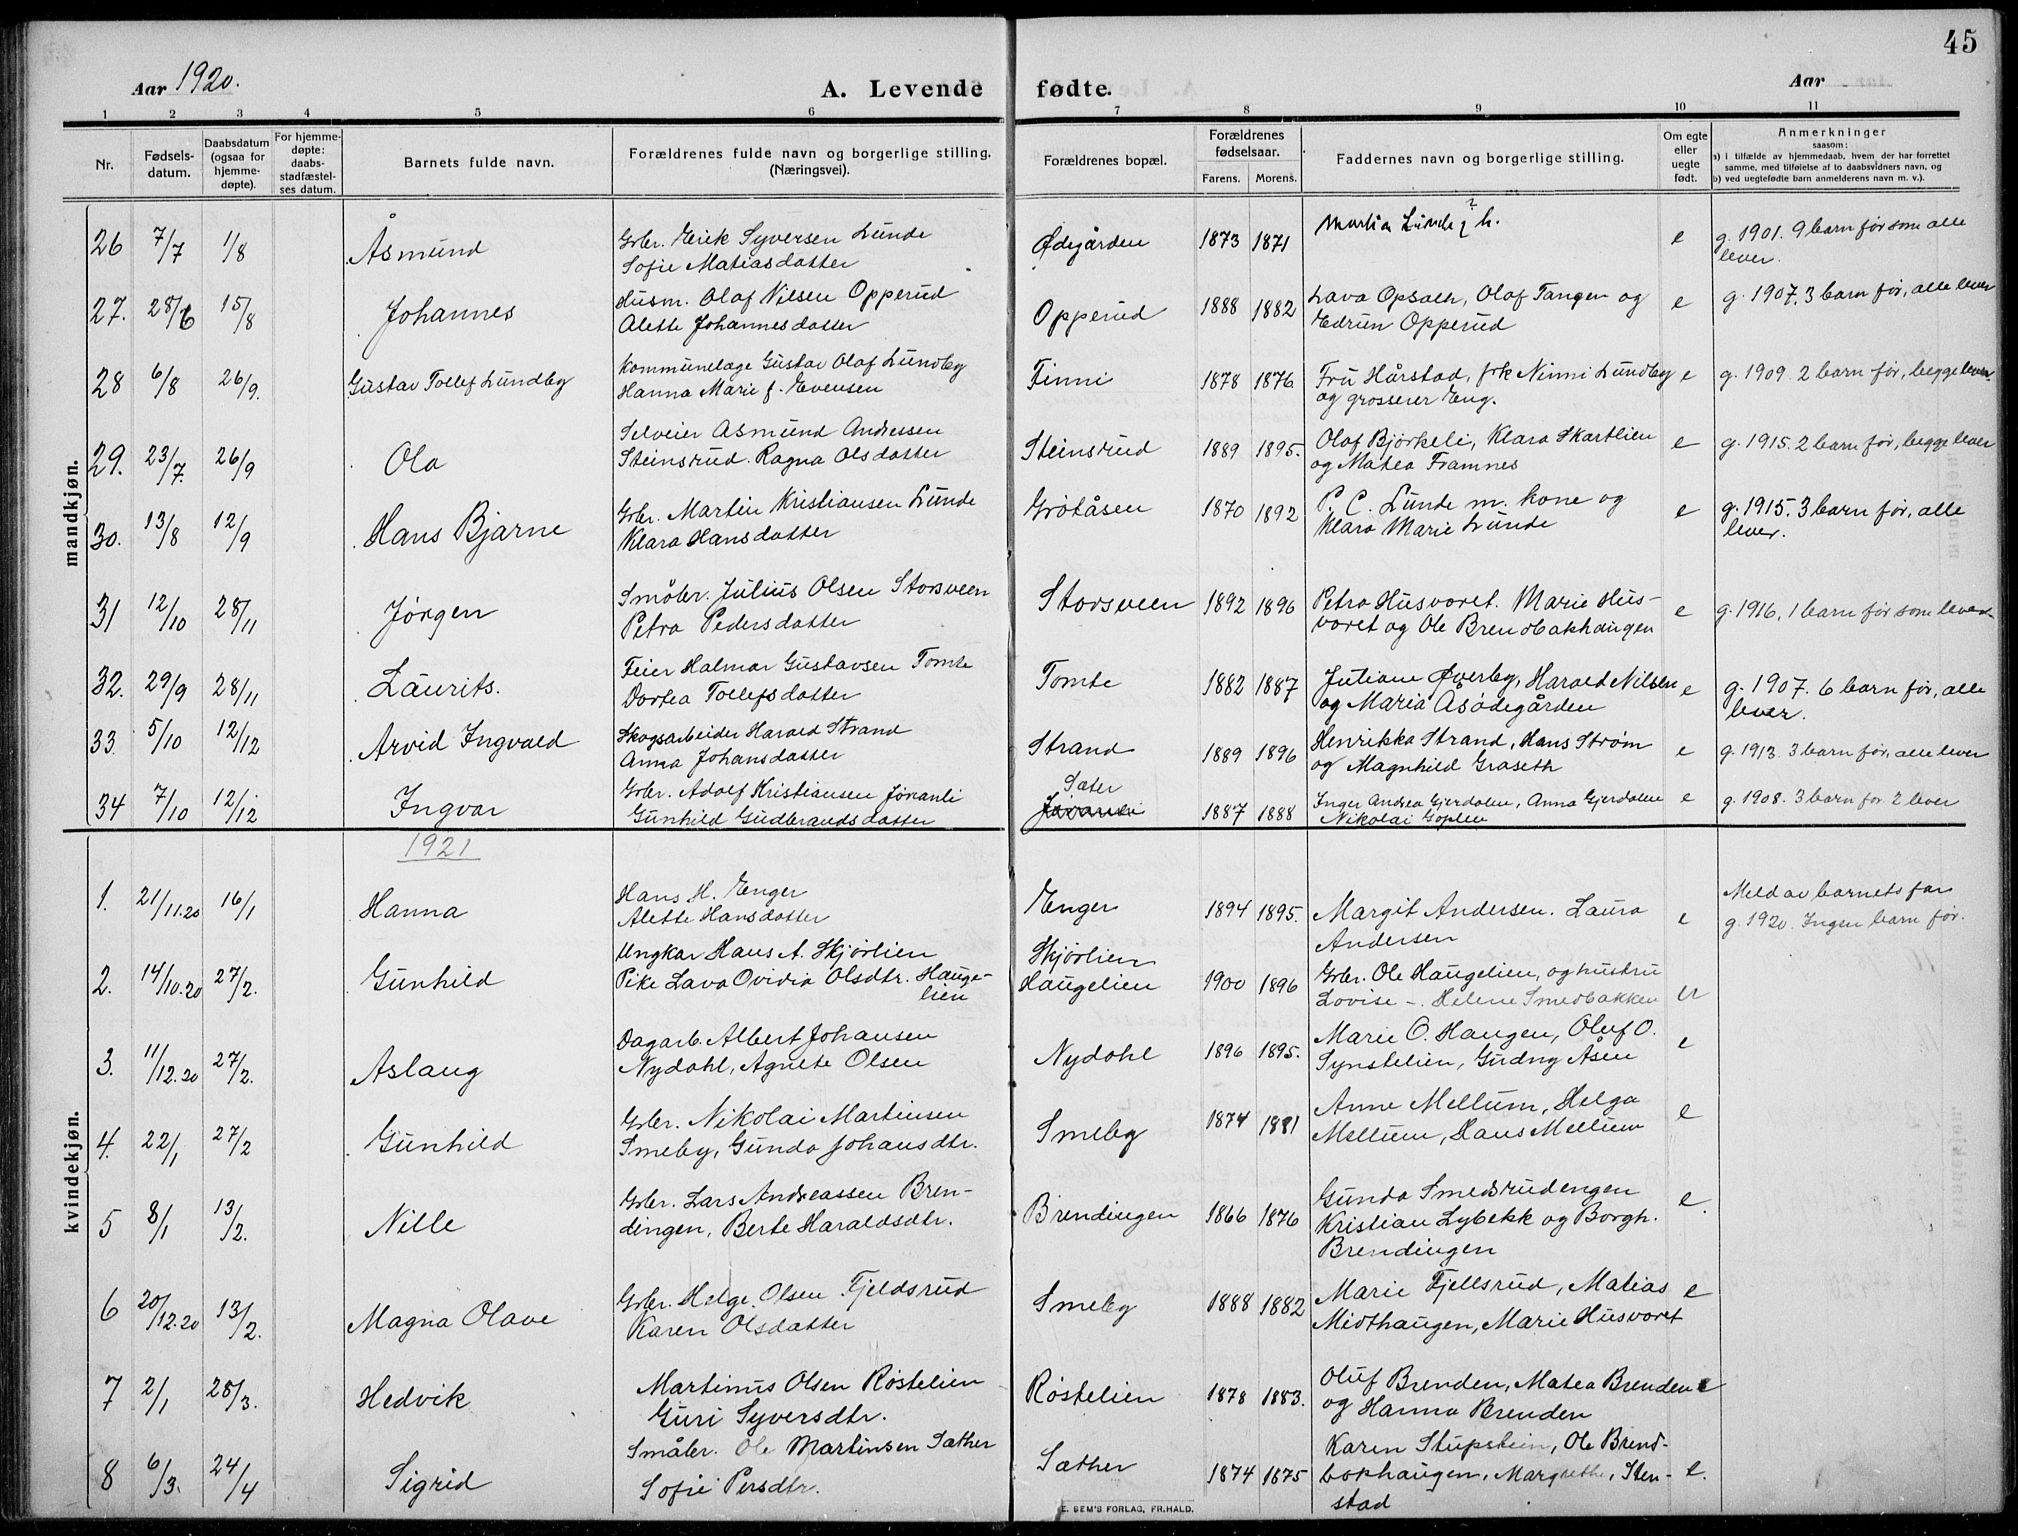 45
Aar 1920.
A. Levende fødte.
Aar
1 2 3 4 5 6 7 8 9 10 11
Nr.
Fødsels-
datum.
Daabsdatum
(ogsaa for
hjemme-
døpte).
For hjemme-
døpte:
daabs-
stadfæstel-
ses datum.
Barnets fulde navn.
Forældrenes fulde navn og borgerlige stilling.
(Næringsvei).
Forældrenes bopæl.
Forældrenes
fødselsaar.
Farens. Morens.
Faddernes navn og borgerlige stilling.
Om egte
eller
uegte
født.
Anmerkninger
saasom:
a) i tilfælde av hjemmedaab, hvem der har forrettet
samme, med tilføielse af to daabsvidners navn, og
b) ved uegtefødte barn anmelderens navn m. v.).
mandkjøn.
26 7/7 1/8 Åsmund
Gbr. Erik Syversen Lunde
Sofie Matiasdatter
Ødegården 1873 1871
Martia Lunde
e g. 1901. 9 barn før som alle
lever.
27. 28/6 15/8 Johannes
Husm. Olaf Nilsen Opperud
Alette Johannesdatter
Opperud 1888 1882
Lava Opsath, Olaf Tangen og
Edrun Opperud
e g. 1907. 3 barn før, alle lever
28 6/8 26/9. Gustav Tollef Lundby
Kommunelæge Gustav Olaf Lundby
Hanna Marie f. Evensen
Finni 1878 1876
Fru Hårstad, frk Ninni Lundby
og grosserer Eng.
e g. 1909. 2 barn før, begge lever.
29. 23/7. 26/9 Ola
Selveier Asmund Andressen
Steinsrud. Ragna Olsdatter
Steinsrud 1889 1895.
Olaf Bjørkeli, Klara Skartlien
og Matea Framnes
e g. 1915. 2 barn før, begge lever
30. 13/8 12/9 Hans Bjarne
Gbr. Martin Kristiansen Lunde
Klara Hansdatter
Grøtåsen 1870 1892
P. C. Lunde m. kone og
Klara Marie Lunde
e g. 1915. 3 barn før, alle
lever.
31 12/10 28/11 Jørgen
Småbr. Julius Olsen Storsveen
Petra Pedersdatter
Storsveen 1892 1896
Petra Husvoret. Marie Hus-
voret og Ole Brendbakhaugen
e g. 1916, 1 barn før som lever
32. 29/9 28/11 Laurits.
Feier Halmar Gustavsen Tomte
Dortea Tollefsdatter
Tomte 1882 1887
Juliane Øverby, Harald Nilsen
og Maria Asødegården
e g. 1907. 6 barn før, alle
lever.
33. 5/10 12/12 Arvid Ingvald
Skogsarbeider Harald Strand
Anna Johansdatter
Strand 1889 1896
Henrikka Strand, Hans Strøm
og Magnhild Graseth
e g. 1913. 3 barn før, alle lever
34 7/10 12/12 Ingvar
Gbr. Adolf Kristiansen
Gunhild Gudbrandsdatter
Sæter
1887 1888
Inger Andrea Gjerdalen, Anna Gjerdalen
Nikolai Goplen
e g. 1908. 3 barn før 2 lever
1921
kvindekjøn.
1. 21/11.20 16/1 Hanna
Hans H. Enger
Alette Hansdatter
Enger 1894 1895.
Margit Andersen. Laura
Andersen
e Meld av barnets far
g. 1920. Ingen barn før.
2. 14/10.20 27/2. Gunhild
Ungkar Hans A. Skjørlien
Pike Lava Ovidia Olsdtr. Hauge-
lien
Skjørlien
Haugelien 1900 1896
Gbr. Ole Haugelien, og hustru
Lovise -. Helene Smedbakken
u
3. 11/12.20 27/2. Aslaug
Dagarb. Albert Johansen
Nydahl, Agnete Olsen
Nydahl 1896 1895.
Marie O. Haugen, Oluf O.
Synstelien, Gudny Åsen
e
4. 22/1 27/2 Gunhild
Gbr. Nikolai Martinsen
Smeby, Gunda Johansdtr.
Smeby 1874 1881
Anne Mellum, Helga
Mellum, Hans Mellum
e
5 8/1 13/2. Nille
Gbr. Lars Andreassen Bren-
dingen, Berte Haraldsdtr.
Brendingen 1866 1876
Gunda Smedsrudengen
Kristian Lybekk og Borgh.
Brendingen
e.
6 20/12.20 13/2. Magna Olave
Gbr. Helge Olsen Fjeldsrud
Karen Olsdatter
Smeby 1888 1882
Marie Fjellsrud, Matias
Midthaugen, Marie Husvoret
e
7 2/1 28/3. Hedvik
Martinus Olsen Røstelien
Guri Syversdtr.
Røstelien 1878 1883.
Oluf Brenden, Matea Brenden
og Hanna Brenden
e
8 6/3. 24/4 Sigrid
Småbr. Ole Martinsen Sæther
Sofie Persdtr.
Sæther 1874 1875
Karen Stupstein, Ole Brend-
bakhaugen, Margrethe, Sten-
stad
e.
E. SEM'S FORLAG, FR.HALD.